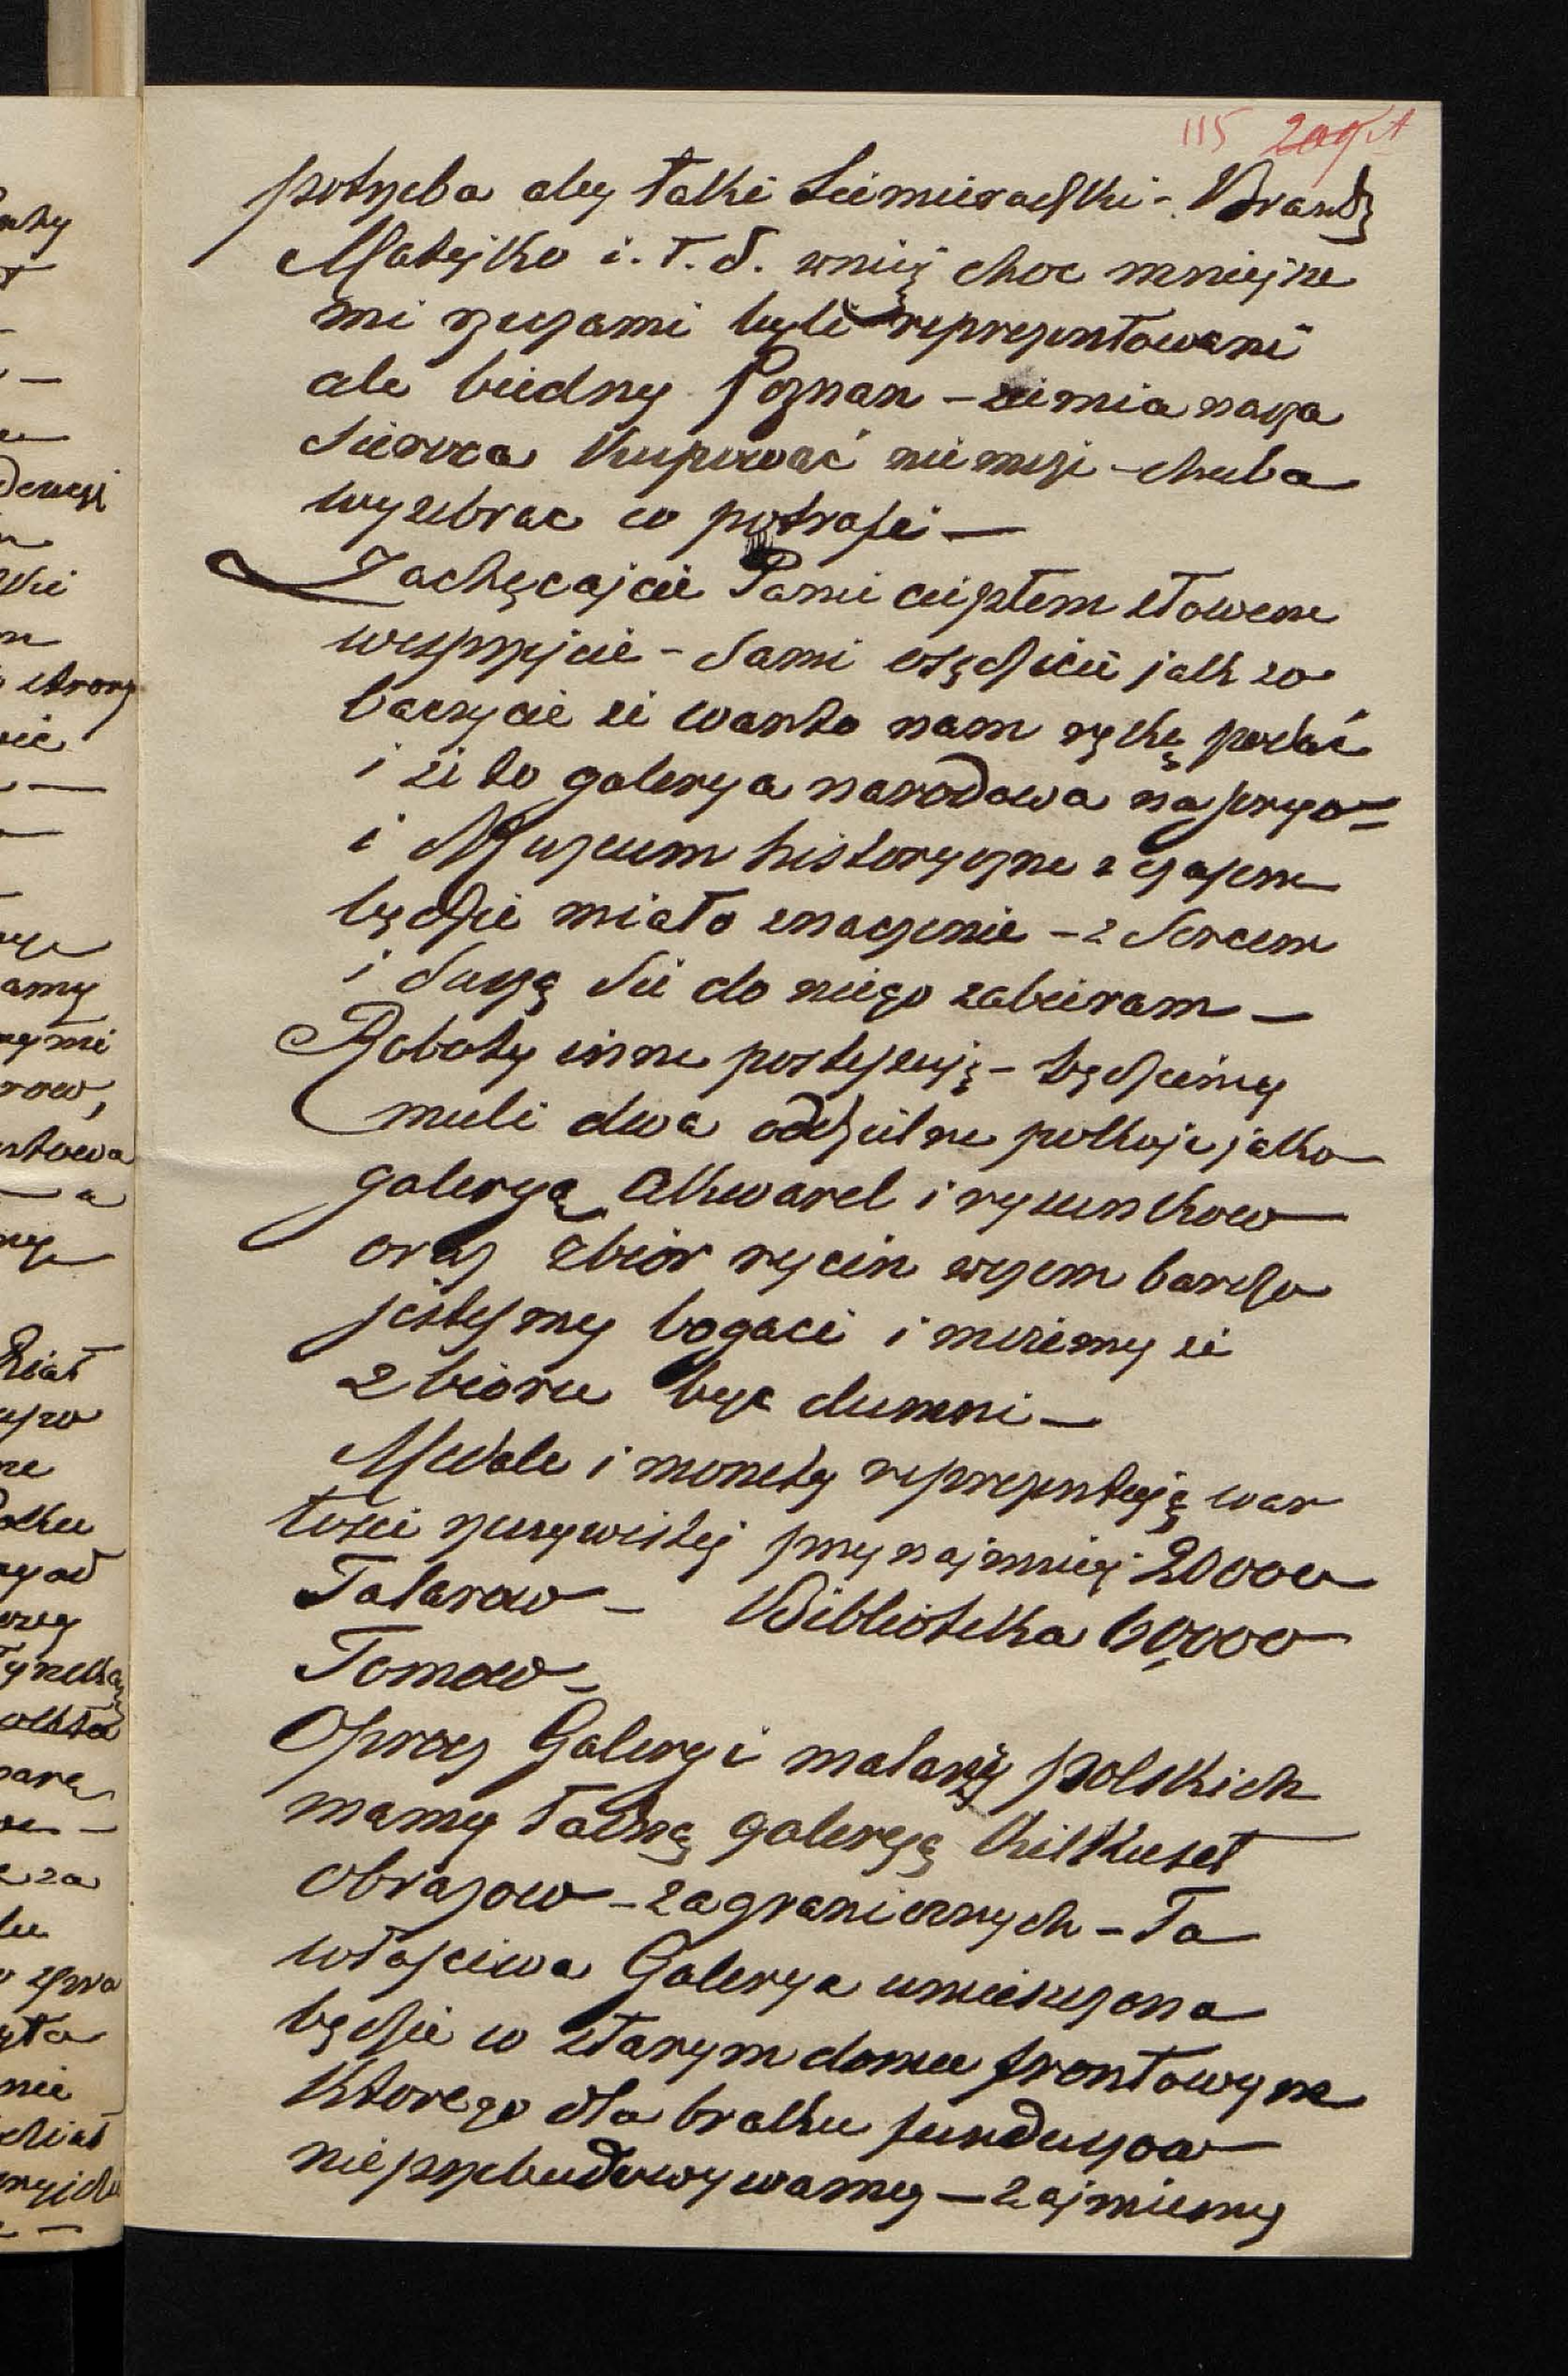 115
potrzeba aby taki Siemieradzki - Brandt
Matejko i. t. d. w niej choc mniejsze
mi rzeczami byli reprezentowani
ale biedny Poznan - ziemia nasza
Sieroca kupować nie może - chuba
wyzebrac co potrafi —
Zachęcajcie Panie ciepłem słowem
wesprzyjcie - Sami osądzicie jak zo
baczycie że warto nam rękę podać
i że to galerya narodowa
i Muzeum historyczne z czasem
będzie miało znaczenie - z Sercem
i Duszą Sie do niego zabieram —
Roboty inne postępują - będziemy
mieli dwa oddzielne pokoje jako
galeryą Akwarel i rysunkow
oraz zbiór rycin w czem bardzo
jesteśmy bogaci i możemy ze
zbioru być dumni —
Medale i monety reprezentują war
tosci rzeczywistej przynajmniej 20000
Talarow — Biblioteka 60,000
Tomow —
Oprocz Galeryi malarzy polskich
mamy ładną galeryą kilkuset
obrazow - zagranicznych - Ta
właściwa Galerya umieszczona
będzie w starym domu frontowym
ktorego dla braku funduszow
nie przebudowywamy — zajmiemy